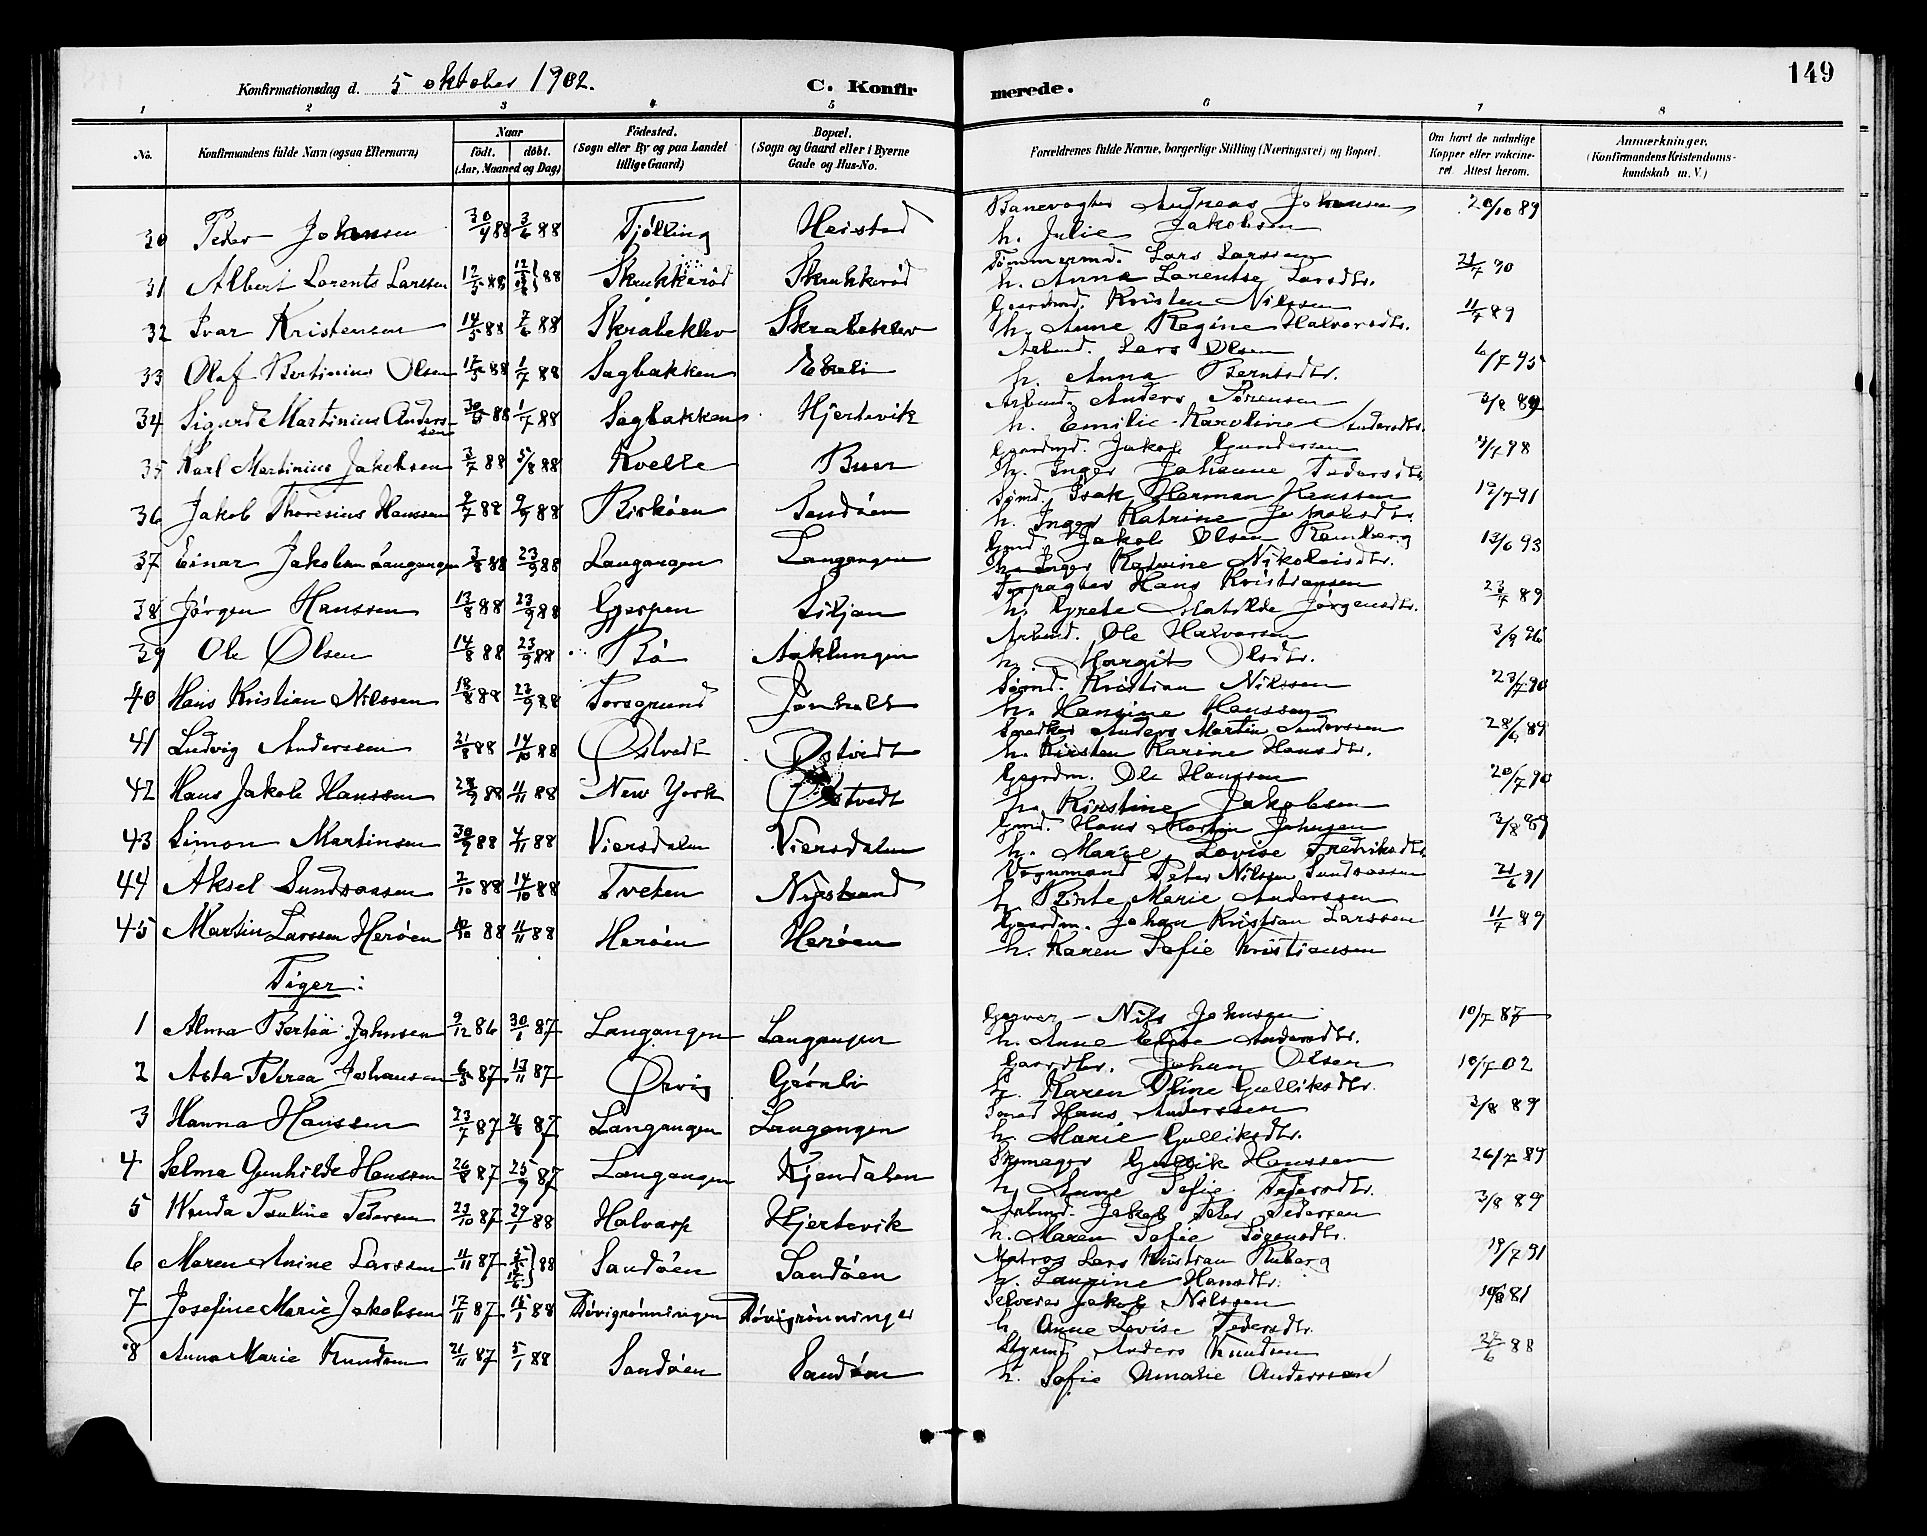 149
Konfirmationsdag d. 5 oktober 1902.
C. Konfirmerede.
1 2 3 4 5 6 7 8
No.
Konfirmandens fulde Navn (ogsaa Efternavn)
Naar
født. døbt.
(Aar, Maaned og Dag)
Fødested.
(Sogn eller By og paa Landet
tillige Gaard)
Bopæl.
(Sogn og Gaard eller i Byerne
Gade og Hus-No.
Forældrenes fulde Navne, borgerlige Stilling (Næringsvei) og Bopæl.
Om havt de naturlige
Kopper eller vakcine-
ret. Attest herom.
Anmærkninger.
(Konfirmandens Kristendoms-
kundskab m. V.)
30 Peder Johansen 88 3/6 88 Tjølling Heistad Banevogter Andreas Johansen 20/10 89
h. Julie Jakobsen
31 Albert Lorents Larssen 12/5 88 88 Skrukkerød Skrukkerød Tømmermd. Lars Larssen 21/7 90
h. Anna Lorentse Larsdtr.
32 Ivar Kristensen 14/5 88 7/6 88 Skrabeklev Skrabeklev Gaardmd. Kristen Nilssen 11/7 89
h. Anne Regine Halvorsdtr.
33 Olaf Bertinius Olsen 17/5 88 1/7 88 Sagbakken Arbmd. Lars Olsen 6/7 95
h. Anna Berntsdtr.
34 Sigurd Martinius Anders-
sen 30/5 88 1/7 88 Sagbakken Hjertevik Arbmd. Anders Sørensen 3/8 89
h. Emilie Karoline Andersdtr.
35 Karl Martinius Jakobsen 3/7 88 5/8 88 Kvelle Buer Gaardmd. Jakob Gundersen 4/7 98
h. Inger Johanne Pedersdtr.
36 Jakob Thoresius Hanssen 2/7 88 2/9 88 Riskøen Sandøen Sømd. Isak Herman Hanssen 12/7 91
h. Inger Katrine Jakobsdtr.
37 Einar Jakobsen Langangen 3/8 88 23/9 88 Langangen Langangen Gmd. Jakob Olsen Ramberg 13/6 93
h. Inger Katrine Nikolaisdtr.
38 Jørgen Hanssen 13/8 88 23/9 88 Gjerpen Siljan Forpagter Hans Kristiansen 23/7 89
h. Grete Matilde Jørgensdtr.
39 Ole Olsen 14/8 88 23/9 88 Bø Aaklungen Arbmd. Ole Halvorsen 3/9 96
h. Margit Olsdtr.
40 Hans Kristian Nilssen 18/8 88 23/9 88 Porsgrund Jønholt Sømd. Kristian Nilssen 23/7 90
h. Hansine Hanssen
41 Ludvig Anderssen 21/8 88 14/10 88 Østvedt Østvedt Snedker Anders Martin Anderssen 28/6 89
h. Kirsten Karine Hansdtr.
42 Hans Jakob Hanssen 28/9 88 4/11 88 New York Østvedt Gaardm. Ole Hanssen 20/7 90
h. Kirstine Jakobsen
43 Simon Martinsen 30/9 88 4/11 88 Viersdalen Viersdalen Gmd. Hans Martin Johnsen 3/8 89
h. Marie Lovise Fredriksdtr.
44 Aksel Sundsaasen 2/10 88 14/10 88 Tveten Nystrand Vognmand Peter Nilssen Sundsaasen 21/6 91
h. Birte Marie Anderssen
45 Martin Larssen Herøen 10/10 88 4/11 88 Herøen Herøen Gaardm. Johan Kristian Larssen 11/7 89
h. Karen Sofie Kristiansen
Piger:
1 Alma Bertea Johnsen 9/12 86 30/1 87 Langangen Langangen Nils Johnsen 10/7 87
h. Anne Elise Andersdtr.
2 Asta Petrea Johansen 6/5 87 13/11 87 Ørvig Grønli Johan Olsen 10/7 02
h. Karen Oline Gulliksdtr.
3 Hanna Hanssen 23/7 87 21/8 87 Langangen Langangen Hans Anderssen 3/8 89
h. Marie Gulliksdtr.
4 Selma Gunhilde Hanssen 26/8 87 25/9 87 Langangen Kjendalen Skomager Gullik Hanssen 26/7 89
h. Anne Sofie Pedersdtr.
5 Wanda Pauline Petersen 23/10 87 29/1 88 Halvarp Hjertevik Arbmd. Jakob Peter Pedersen 3/8 89
h. Maren Sofie
6 Maren Anine Larssen 11/11 87 88 Sandøen Sandøen Matros Lars Kristian Tuberg 19/7 91
h. Laurine Hansdtr.
7 Josefine Marie Jakobsen 17/11 87 15/1 88 Døvigrønningen Døvigrønningen Selveier Jakob Nilssen 81
h. Anne Lovise Pedersdtr.
8 Anna Marie Knudsen 21/11 87 5/1 88 Sandøen Sandøen Styrmd. Anders Knudsen 27/6 88
h. Sofie Amalie Anderssen